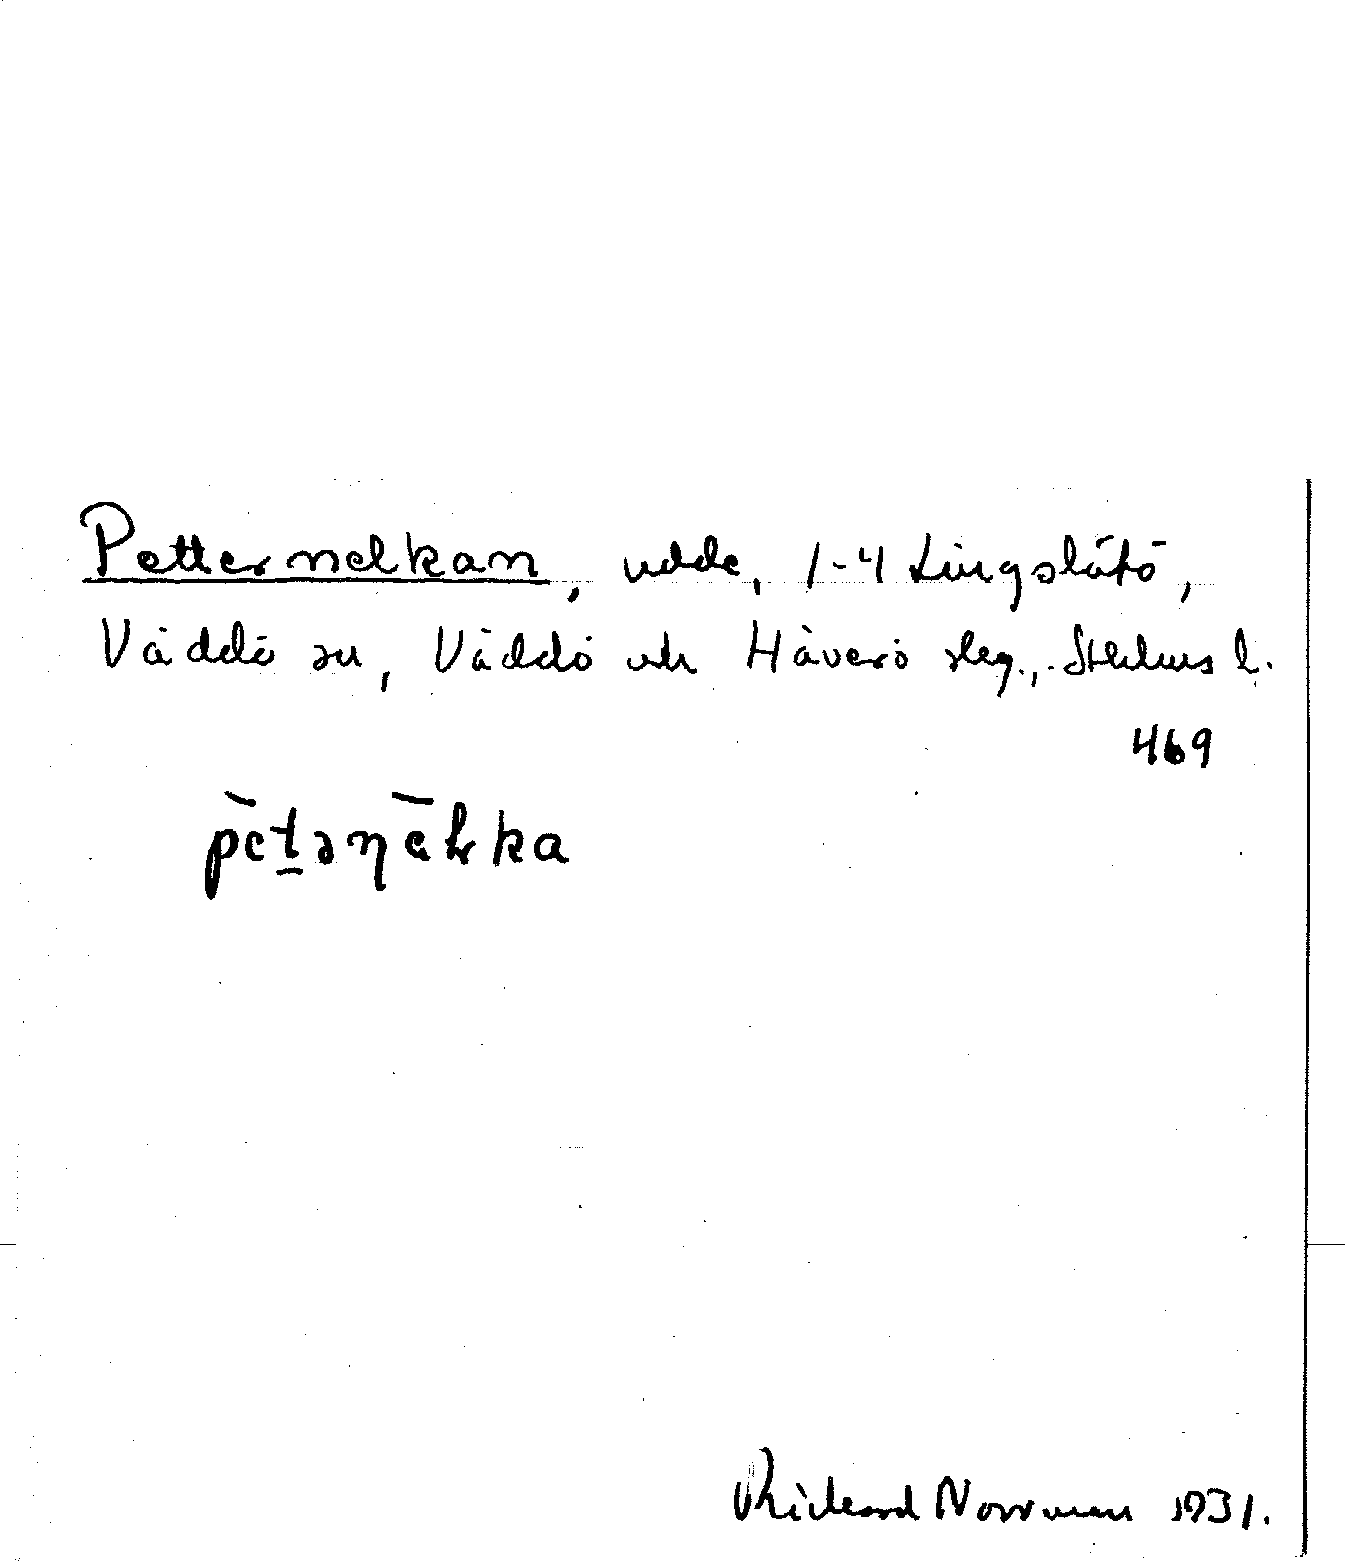 Petternelkan, udde, 1-4 Lingslätö,
Väddö sn, Väddö och Häverö slg., Sthlms l.
469
pētəηēlka
Rickard Norrman 1931.